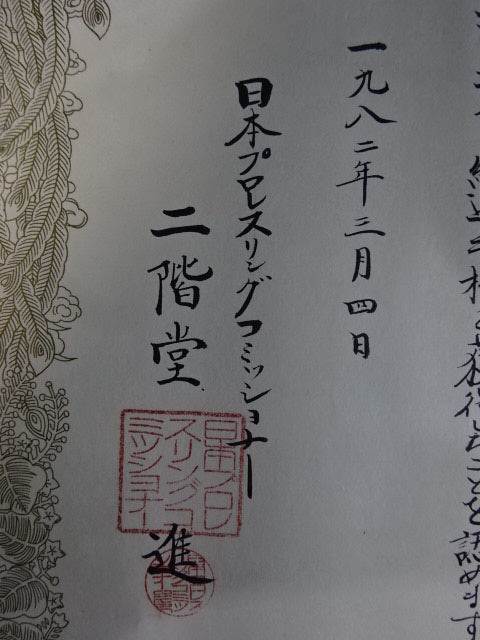 を獲得したことを認めます
一九八二年三月四日
日本プロレスリングコミッショナー
二階堂 進
日本プロレ
スリングコ
ミッショナー